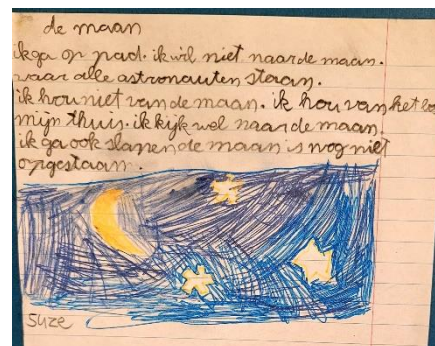 de maan
ik ga op pad. ik wil niet naar de maan.
waar alle astronauten staan.
ik hou niet van de maan. ik hou van het
mijn thuis. ik kijk wel naar de maan.
ik ga ook slapen de maan is nog niet
opgestaan.
suze